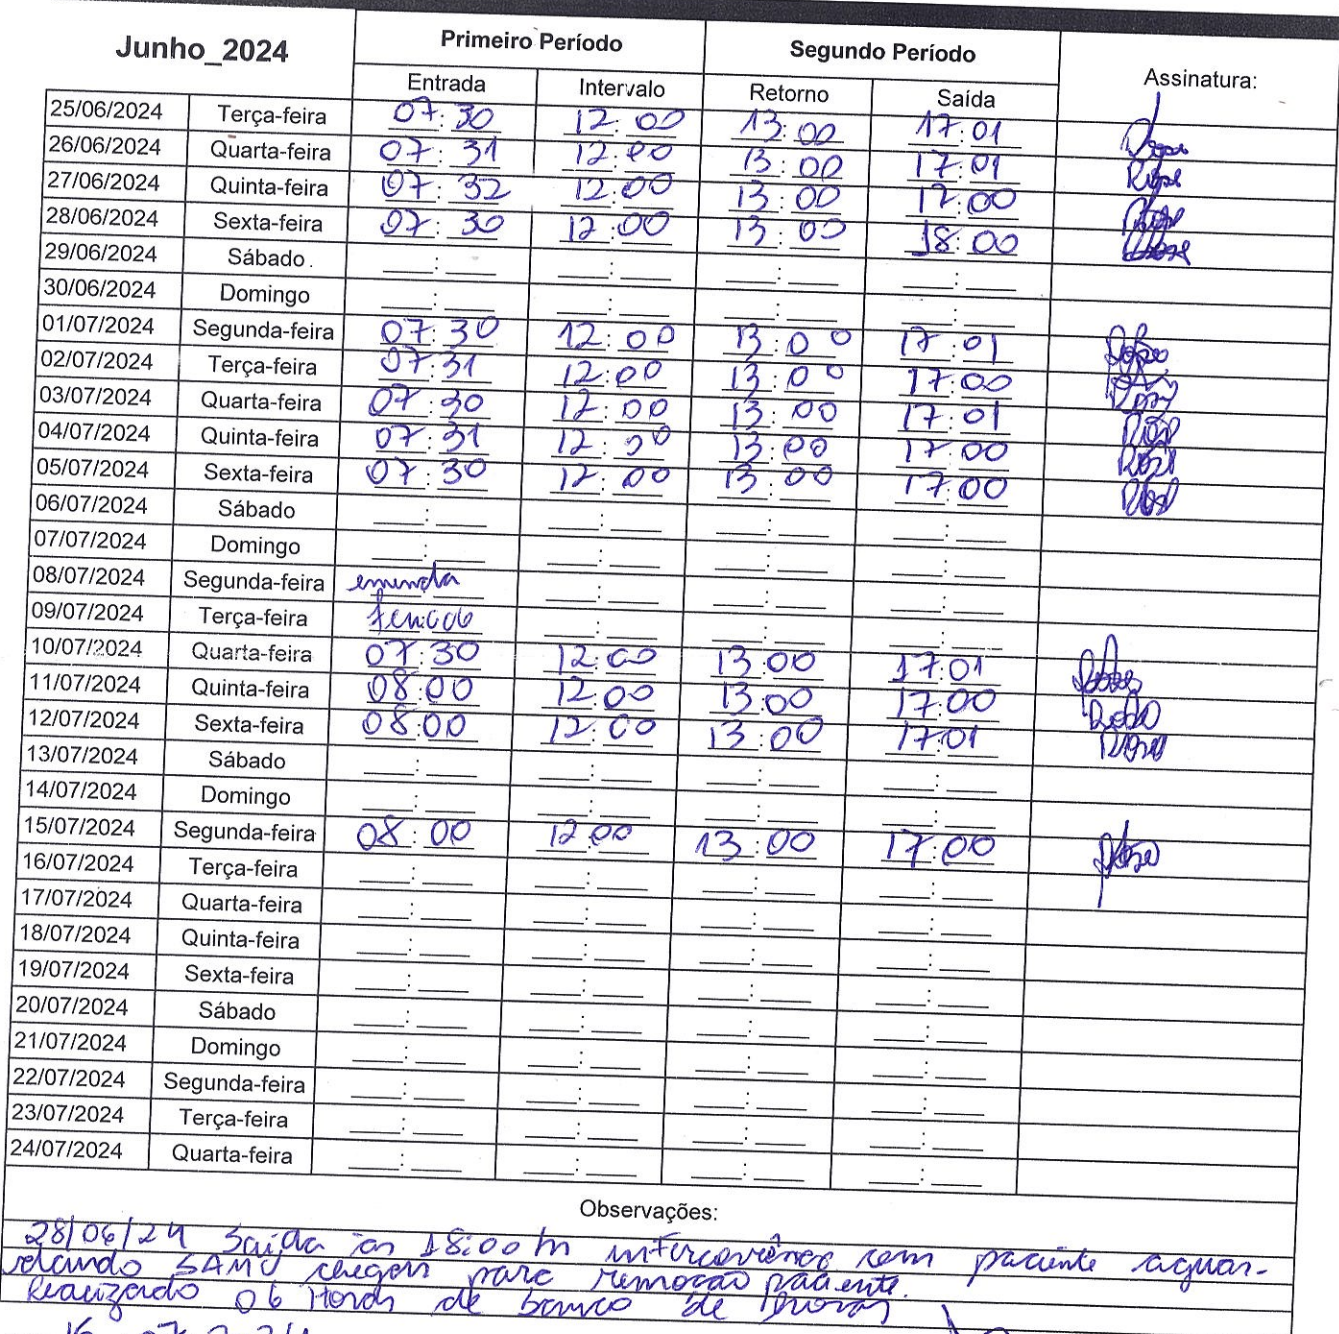 Junho_2024 Primeiro Período Segundo Período Assinatura:
Entrada Intervalo Retorno Saída
25/06/2024 Terça-feira 07:30 12:00 13:00 17:01
26/06/2024 Quarta-feira 07:31 12:00 13:00 17:01 Rose
27/06/2024 Quinta-feira 07:32 12:00 13:00 17:00
28/06/2024 Sexta-feira 07:30 12:00 13:00 18:00
29/06/2024 Sábado
30/06/2024 Domingo
01/07/2024 Segunda-feira 07:30 12:00 13:00 17:01
02/07/2024 Terça-feira 07:31 12:00 13:00 17:00
03/07/2024 Quarta-feira 07:30 12:00 13:00 17:01
04/07/2024 Quinta-feira 07:31 12:00 13:00 17:00
05/07/2024 Sexta-feira 07:30 12:00 13:00 17:00
06/07/2024 Sábado
07/07/2024 Domingo
08/07/2024 Segunda-feira emenda
09/07/2024 Terça-feira
10/07/2024 Quarta-feira 07:30 12:00 13:00 17:01
11/07/2024 Quinta-feira 08:00 12:00 13:00 17:00
12/07/2024 Sexta-feira 08:00 12:00 13:00 17:01
13/07/2024 Sábado
14/07/2024 Domingo
15/07/2024 Segunda-feira 08:00 12:00 13:00 17:00
16/07/2024 Terça-feira
17/07/2024 Quarta-feira
18/07/2024 Quinta-feira
19/07/2024 Sexta-feira
20/07/2024 Sábado
21/07/2024 Domingo
22/07/2024 Segunda-feira
23/07/2024 Terça-feira
24/07/2024 Quarta-feira
Observações:
28/06/24 Saida as 18:00 h com paciente aguar-
dando SAMU para remoção paciente.
Realizado 06 Horas de banco de horas